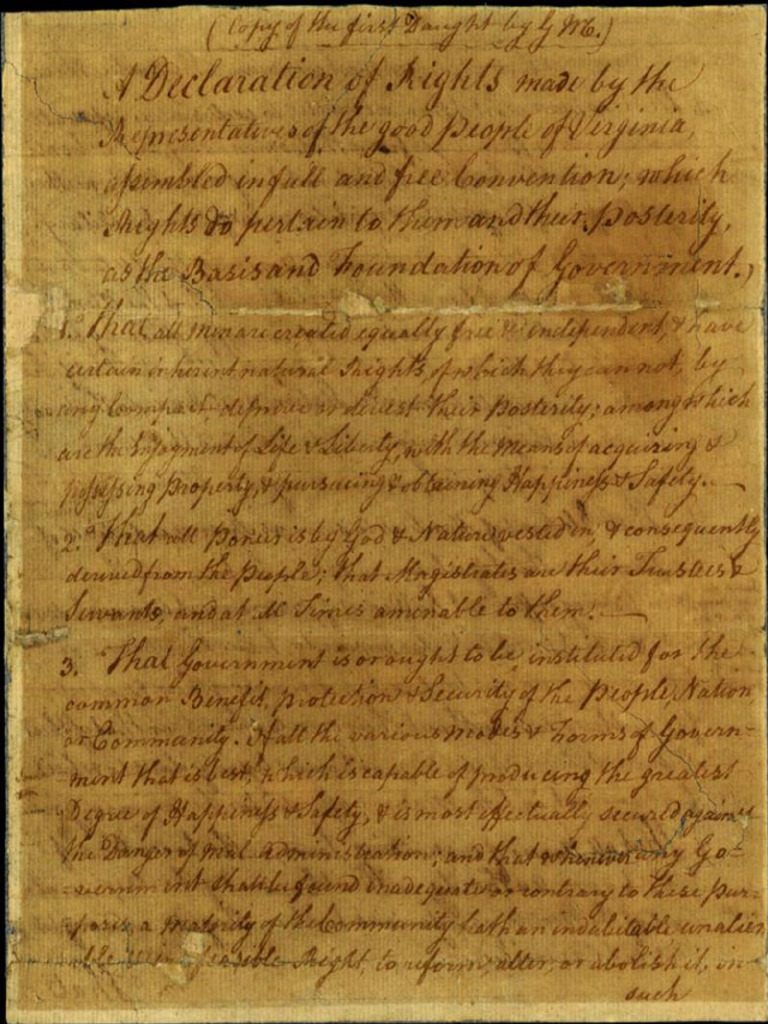 (Copy of the first Daught by G M.)
A Declaration of Rights made by the
Representatives of the good people of Virginia,
assembled in full and free Convention; which
Rights do pertain to them and their posterity,
as the Basis and Foundation of Government.)
1. That all men are created equally free & independent, & have
certain inherent natural Rights, of which they cannot, by
any Compact, deprive or divest their Posterity; among which
are the Enjoyment of Life & Liberty, with the Means of acquiring &
possessing Property, & pursueing & obtaining Happiness & Safety.
2. That all Power is by God & Nature vested in, & consequently
derived from the People; that Magistrates are their Trustees &
Servants, and at all Times amenable to them.
3. That Government is or ought to be, instituted for the
common Benefit, protection & Security of the People, Nation,
or Community. Of all the various Modes & Forms of Govern-
ment that is best, which is capable of producing the greatest
Degree of Happiness & Safety, & is most effectually secured against
the Danger of mal administration; and that whenever any Go-
-vernment shall be found inadequate or contrary to these pur-
-poses, a majority of the Community hath an indubitable unalien
able Right, to reform, alter, or abolish it, in
such